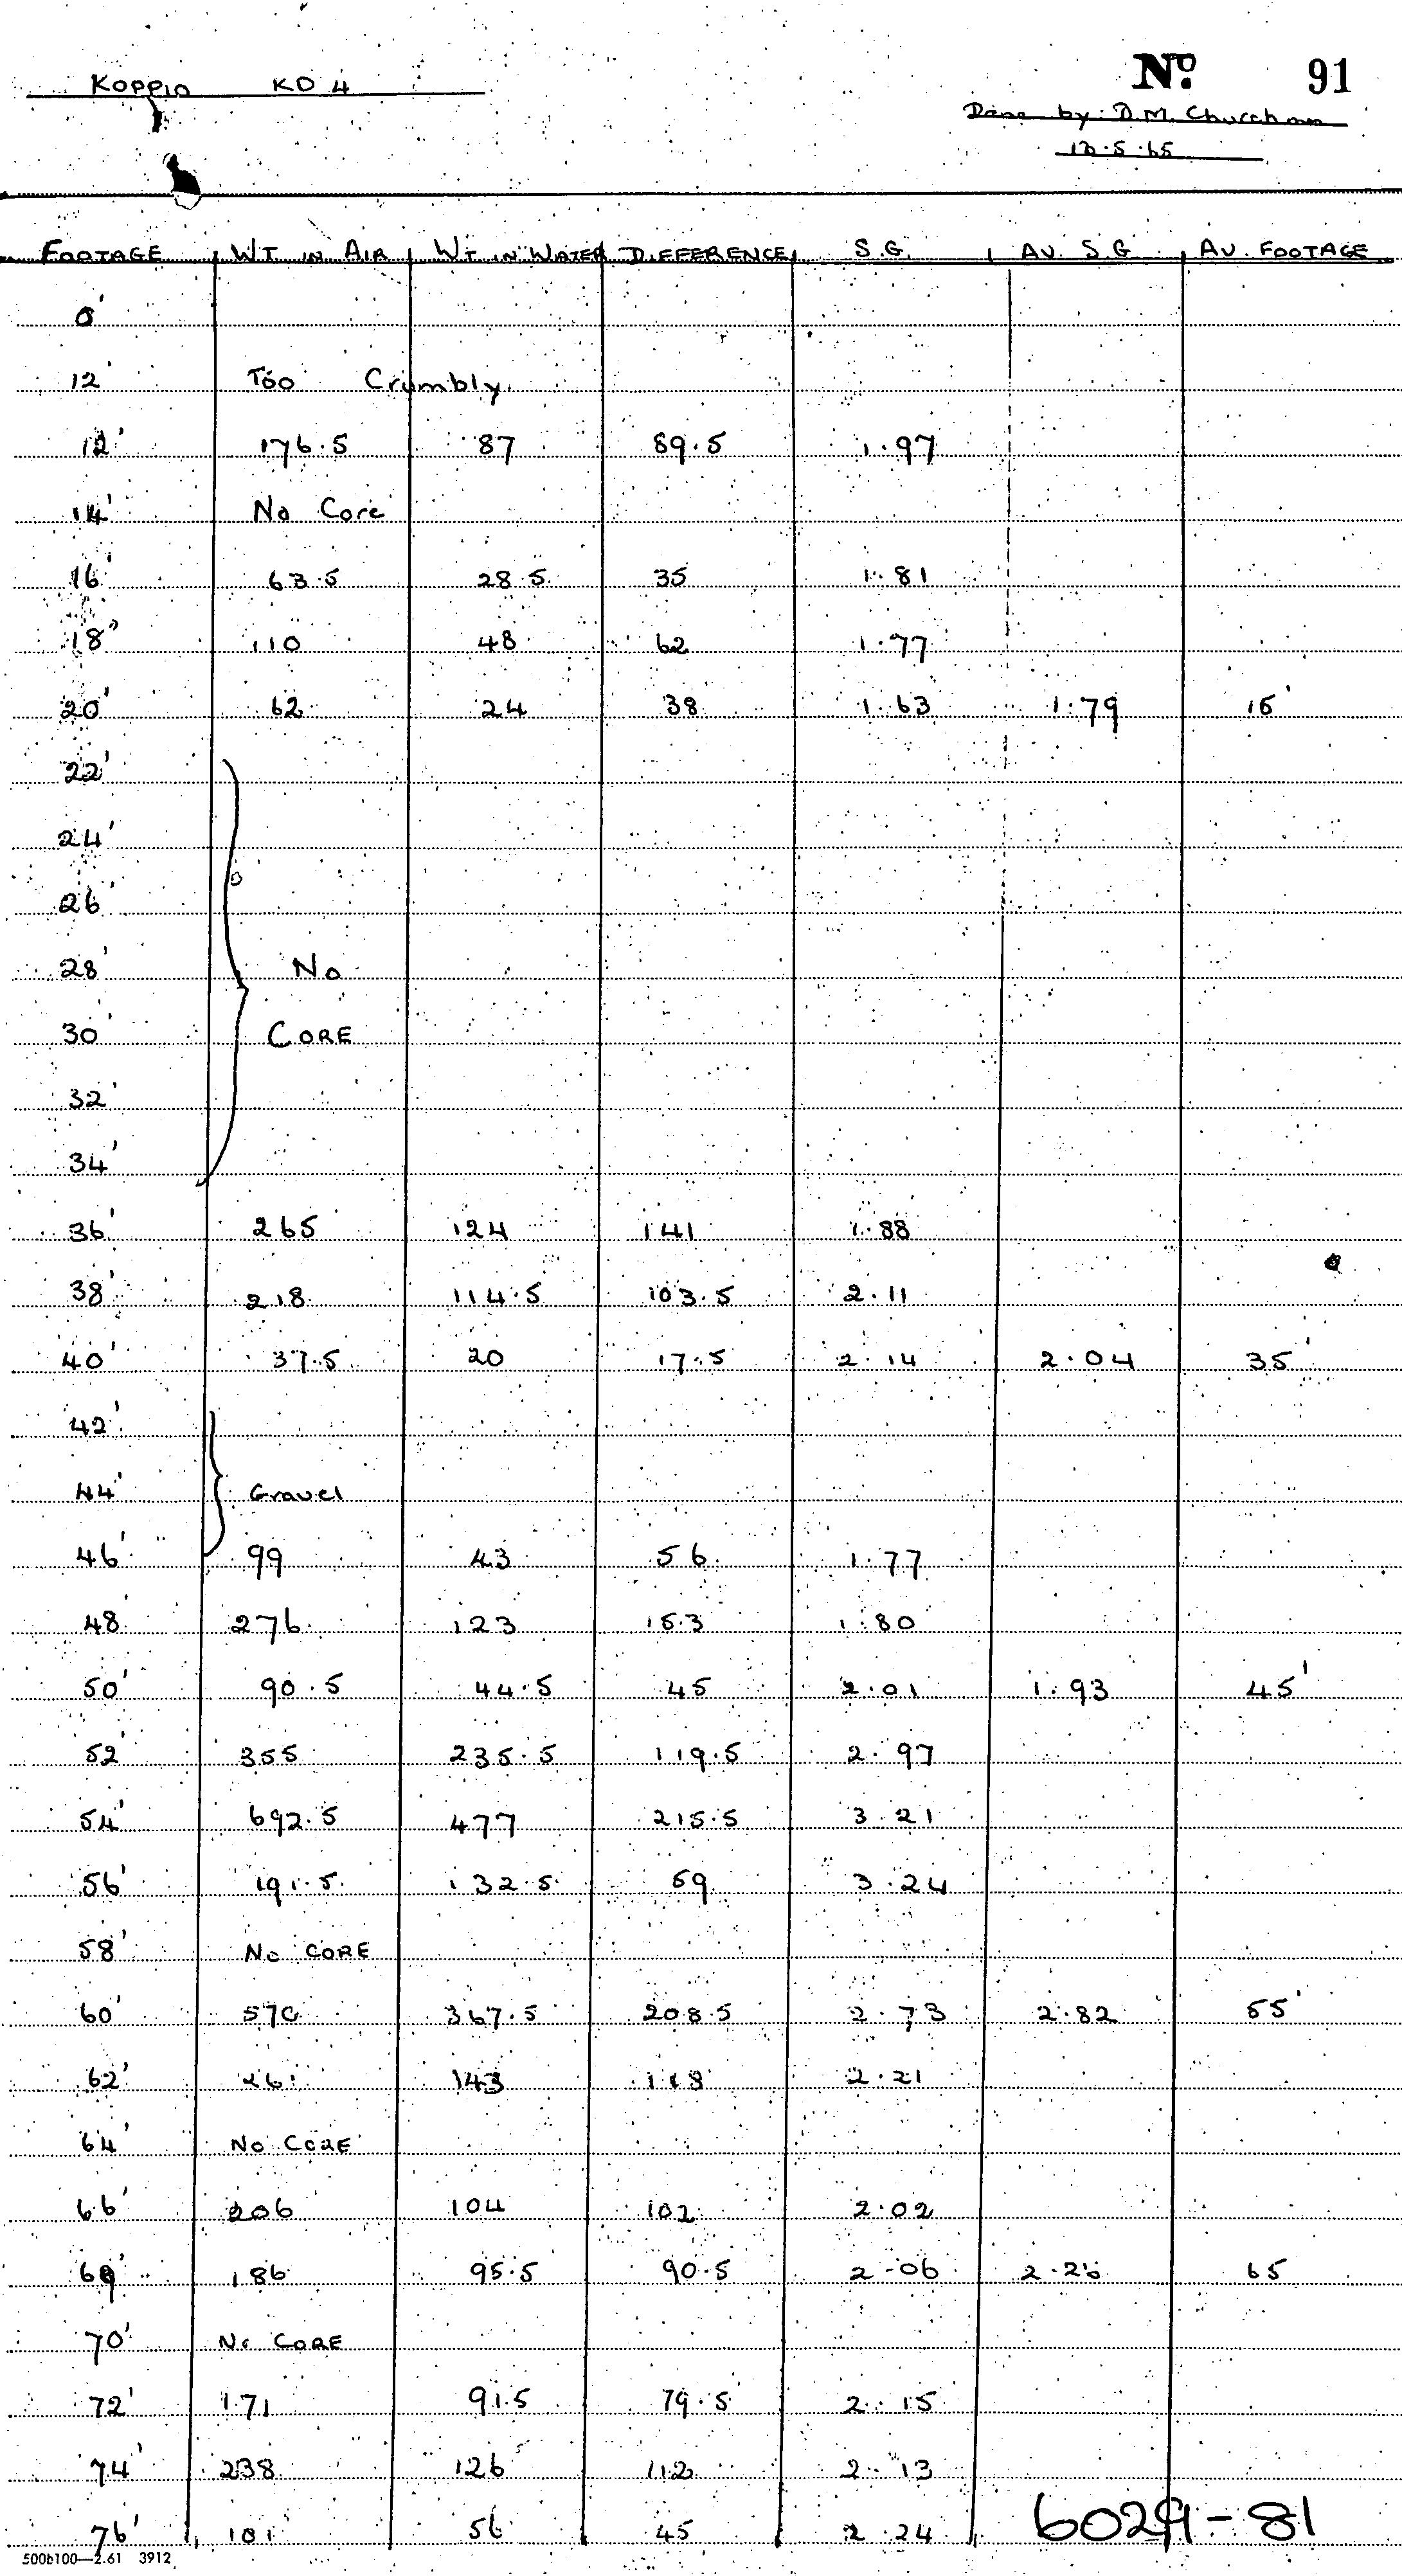 KOPPIO KD 4
No. 91
Done by: D.M. Churchman
.5.65
FOOTAGE WT IN AIR WT IN WATER DIFFERENCE S.G. AV S.G AV. FOOTAGE
0'
12' Too Crumbly
12' 176.5 87 89.5 1.97
14' No Core
16' 63.5 28.5 35 1.81
18' 110 48 62 1.77
20' 62 24 38 1.63 1.79 15'
22'
24'
26'
28' No
30' CORE
32'
34'
36' 265 124 141 1.88
38' 218 114.5 103.5 2.11
40' 37.5 20 17.5 2.14 2.04 35'
42'
44' Gravel
46' 99 43 56 1.77
48 276 123 153 1.80
50' 90.5 44.5 45 2.01 1.93 45'
52' 355 235.5 119.5 2.97
54' 692.5 477 215.5 3.21
56' 191.5 132.5 59 3.24
58' No CORE
60' 576 367.5 208.5 2.73 2.82 55'
62' 261 143 118 2.21
64' No CORE
66' 206 104 102 2.02
68' 186 95.5 90.5 2.06 65
70' No CORE
72' 171 91.5 79.5 2.15
74' 238 126 112 2.13
76' 101 56 45 2.24
6029-81
500b100—2.61 3912